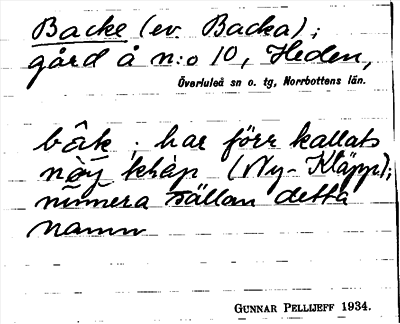 Backe (ev. Backa);
gård å n:o 10, Heden,
Överluleå sn o. tg, Norrbottens län.
bāk; har förr kallats
(Ny-Kläpp);
numera sällan detta
namn
GUNNAR PELLIJEFF 1934.